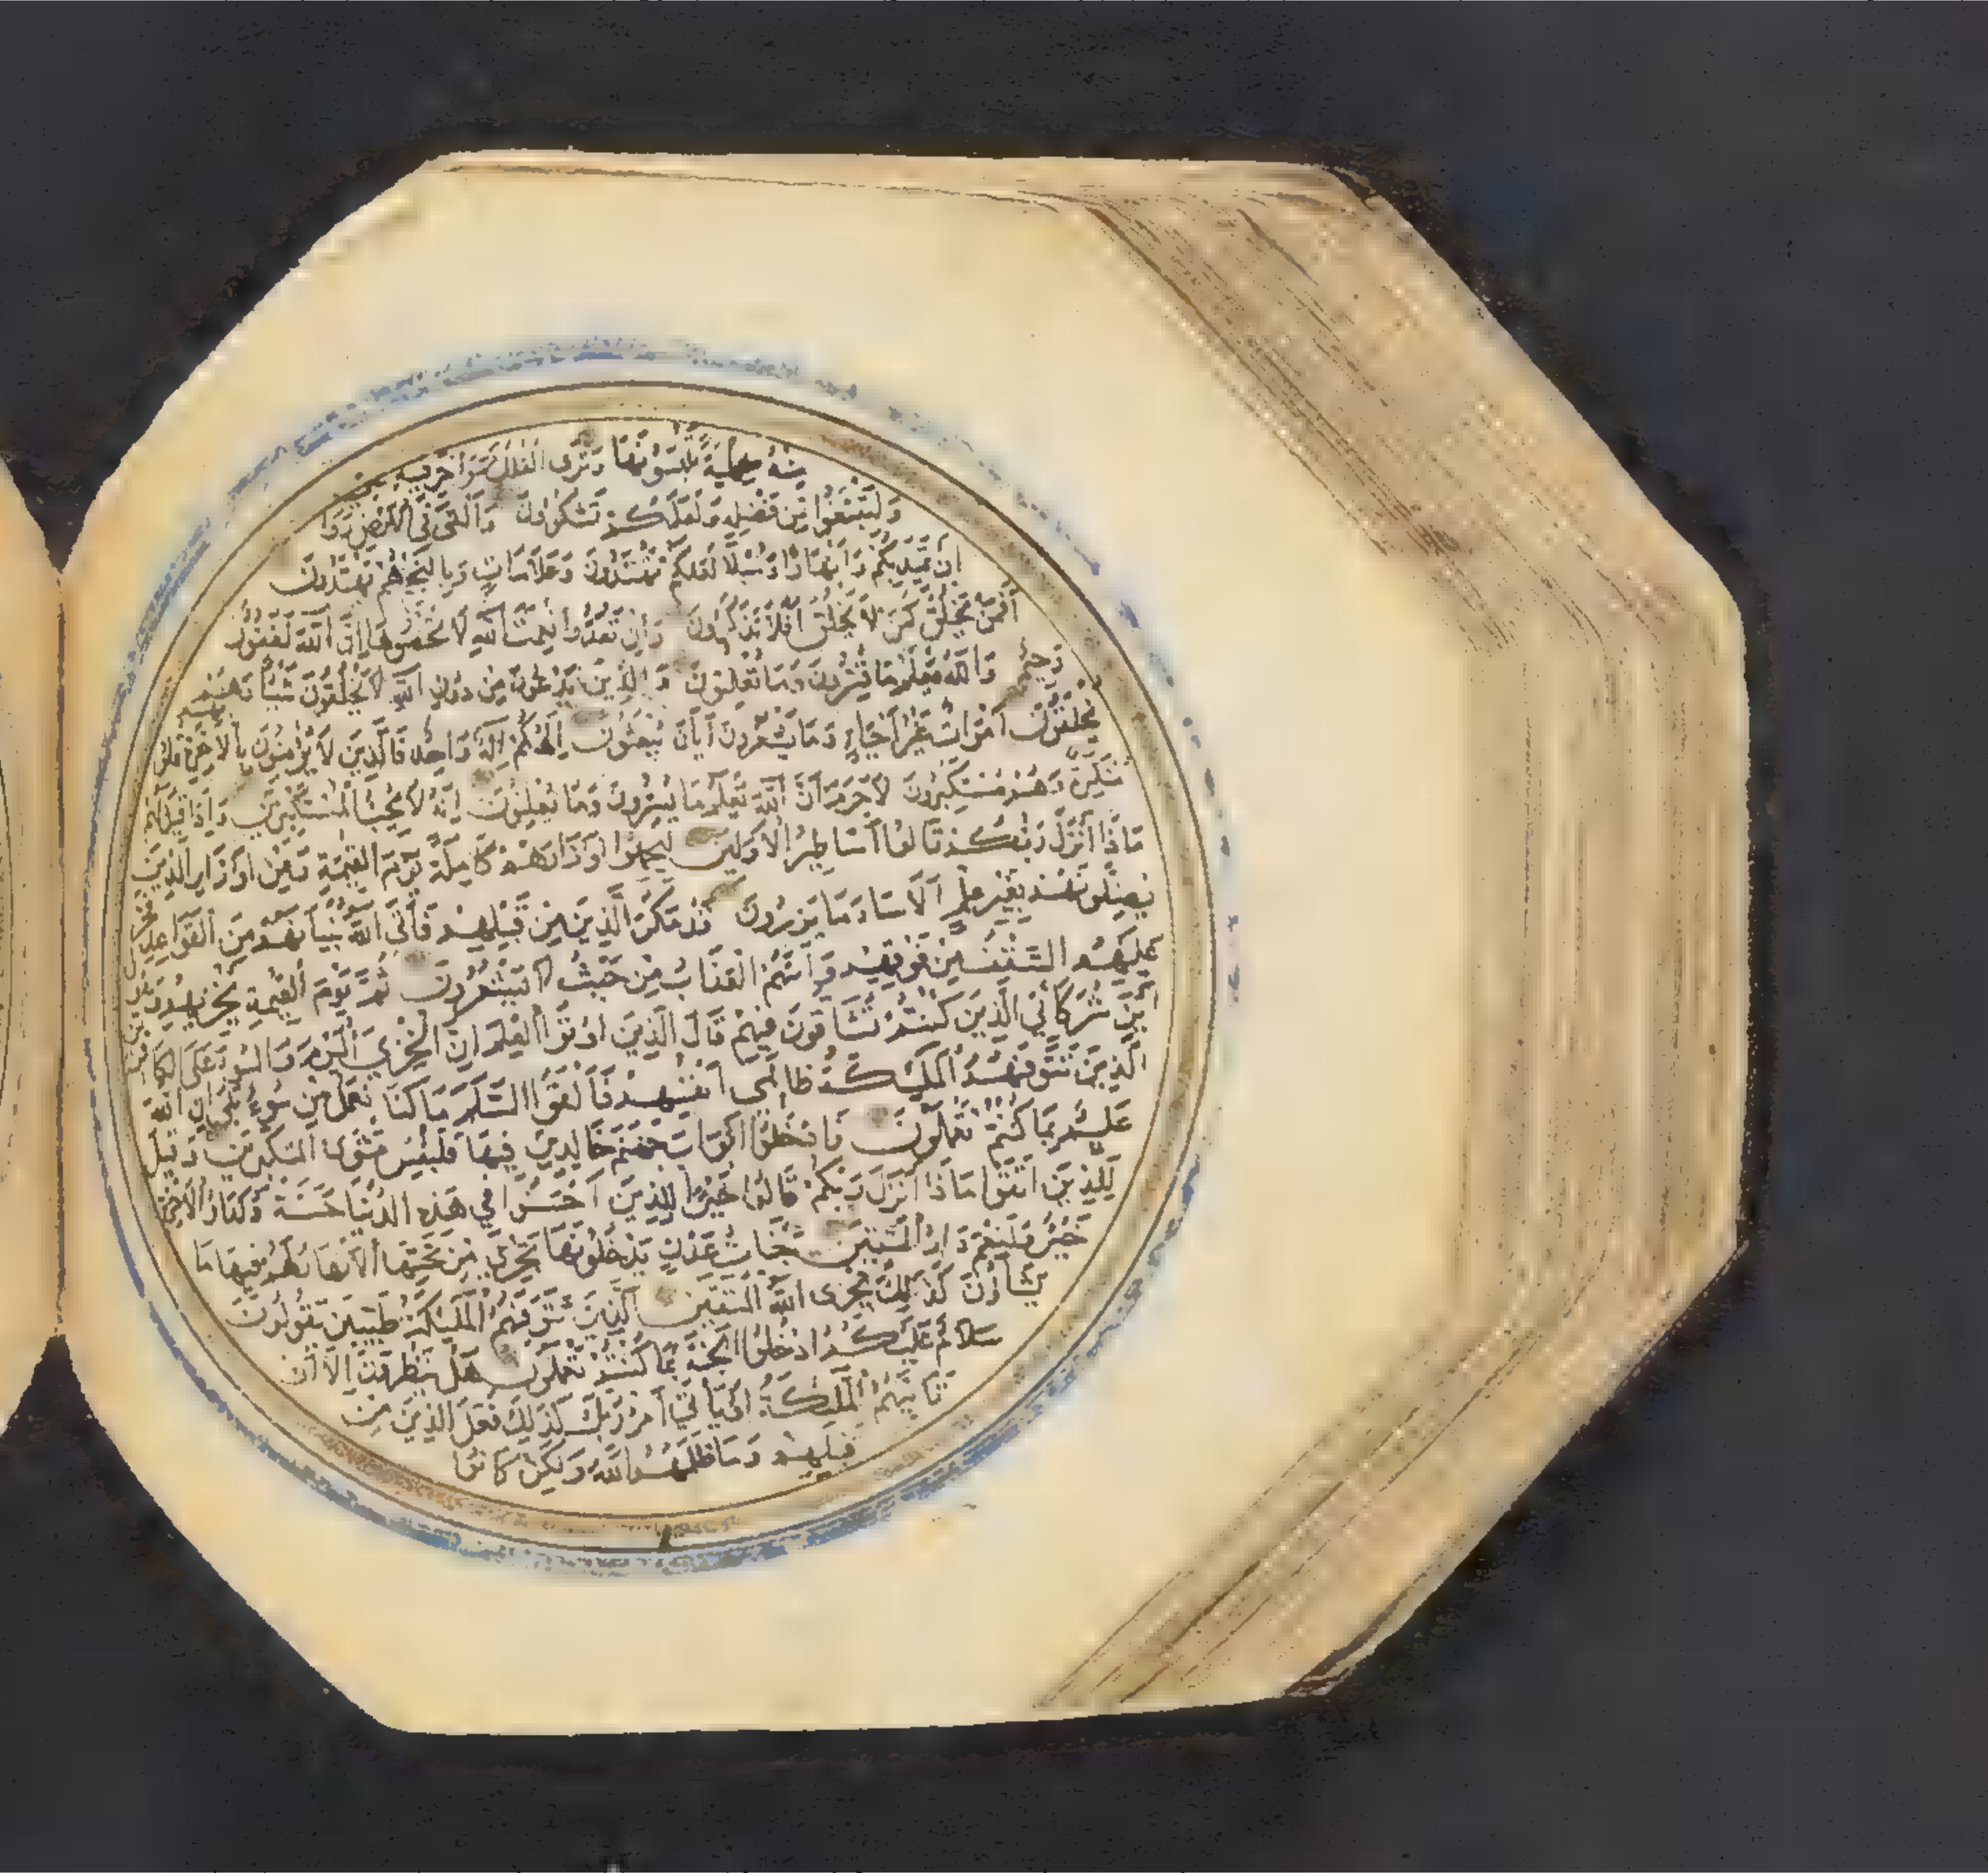 منه حلية تلبسونها وترى الفلك مواخر فيه
ولتبتغوا من فضله ولعلكم تشكرون والقى في الارض روا
ان تميد بكم وانهارا وسبلا لعلكم تهتدون وعلامات وبالنجم هم يهتدون
أفمن يخلق كمن لا يخلق أفلا تذكرون وان تعدوا نعمت الله لا تحصوها إن الله لغفور
رحيم والله يعلم ما تسرون وما تعلنون والذين يدعون من دون الله لا يخلقون شيئا وهم
يخلقون اموات غير احياء وما يشعرون أيان يبعثون الهكم اله واحد فالذين لا يؤمنون بالاخرة قلوبهم
منكرة وهم مستكبرون لا جرم أن الله يعلم ما يسرون وما يعلنون إنه لا يحب المستكبرين وإذا قيل لهم
ماذا أنزل ربكم قالوا أساطير الأولين ليحملوا أوزارهم كاملة يوم القيمة ومن اوزار الذين
يضلونهم بغير علم الا ساء ما يزرون قد مكر الذين من قبلهم فأتى الله بنيانهم من القواعد فخر
عليهم السقف من فوقهم وأتهم العذاب من حيث لا يشعرون ثم يوم القيمة يخزيهم ويقول
أين شركائي الذين كنتم تشاقون فيهم قال الذين اوتوا العلم ان الخزي اليوم والسوء على الكافرين
الذين تتوفهم الملئكة ظالمي أنفسهم فألقوا السلم ما كنا نعمل من سوء بلى إن الله
عليم بما كنتم تعملون فادخلوا ابواب جهنم خالدين فيها فلبئس مثوى المتكبرين وقيل
للذين اتقوا ماذا أنزل ربكم قالوا خيرا للذين أحسنوا في هذه الدنيا حسنة ولدار الآخرة
خير ولنعم دار المتقين جنات عدن يدخلونها تجري من تحتها الأنهار لهم فيها ما
يشاؤن كذلك يجزى الله المتقين الذين تتوفهم الملئكة طيبين يقولون
سلام عليكم ادخلوا الجنة بما كنتم تعملون هل ينظرون إلا أن
تاتيهم الملئكة او يأتي أمر ربك كذلك فعل الذين من
قبلهم وما ظلمهم الله ولكن كانوا